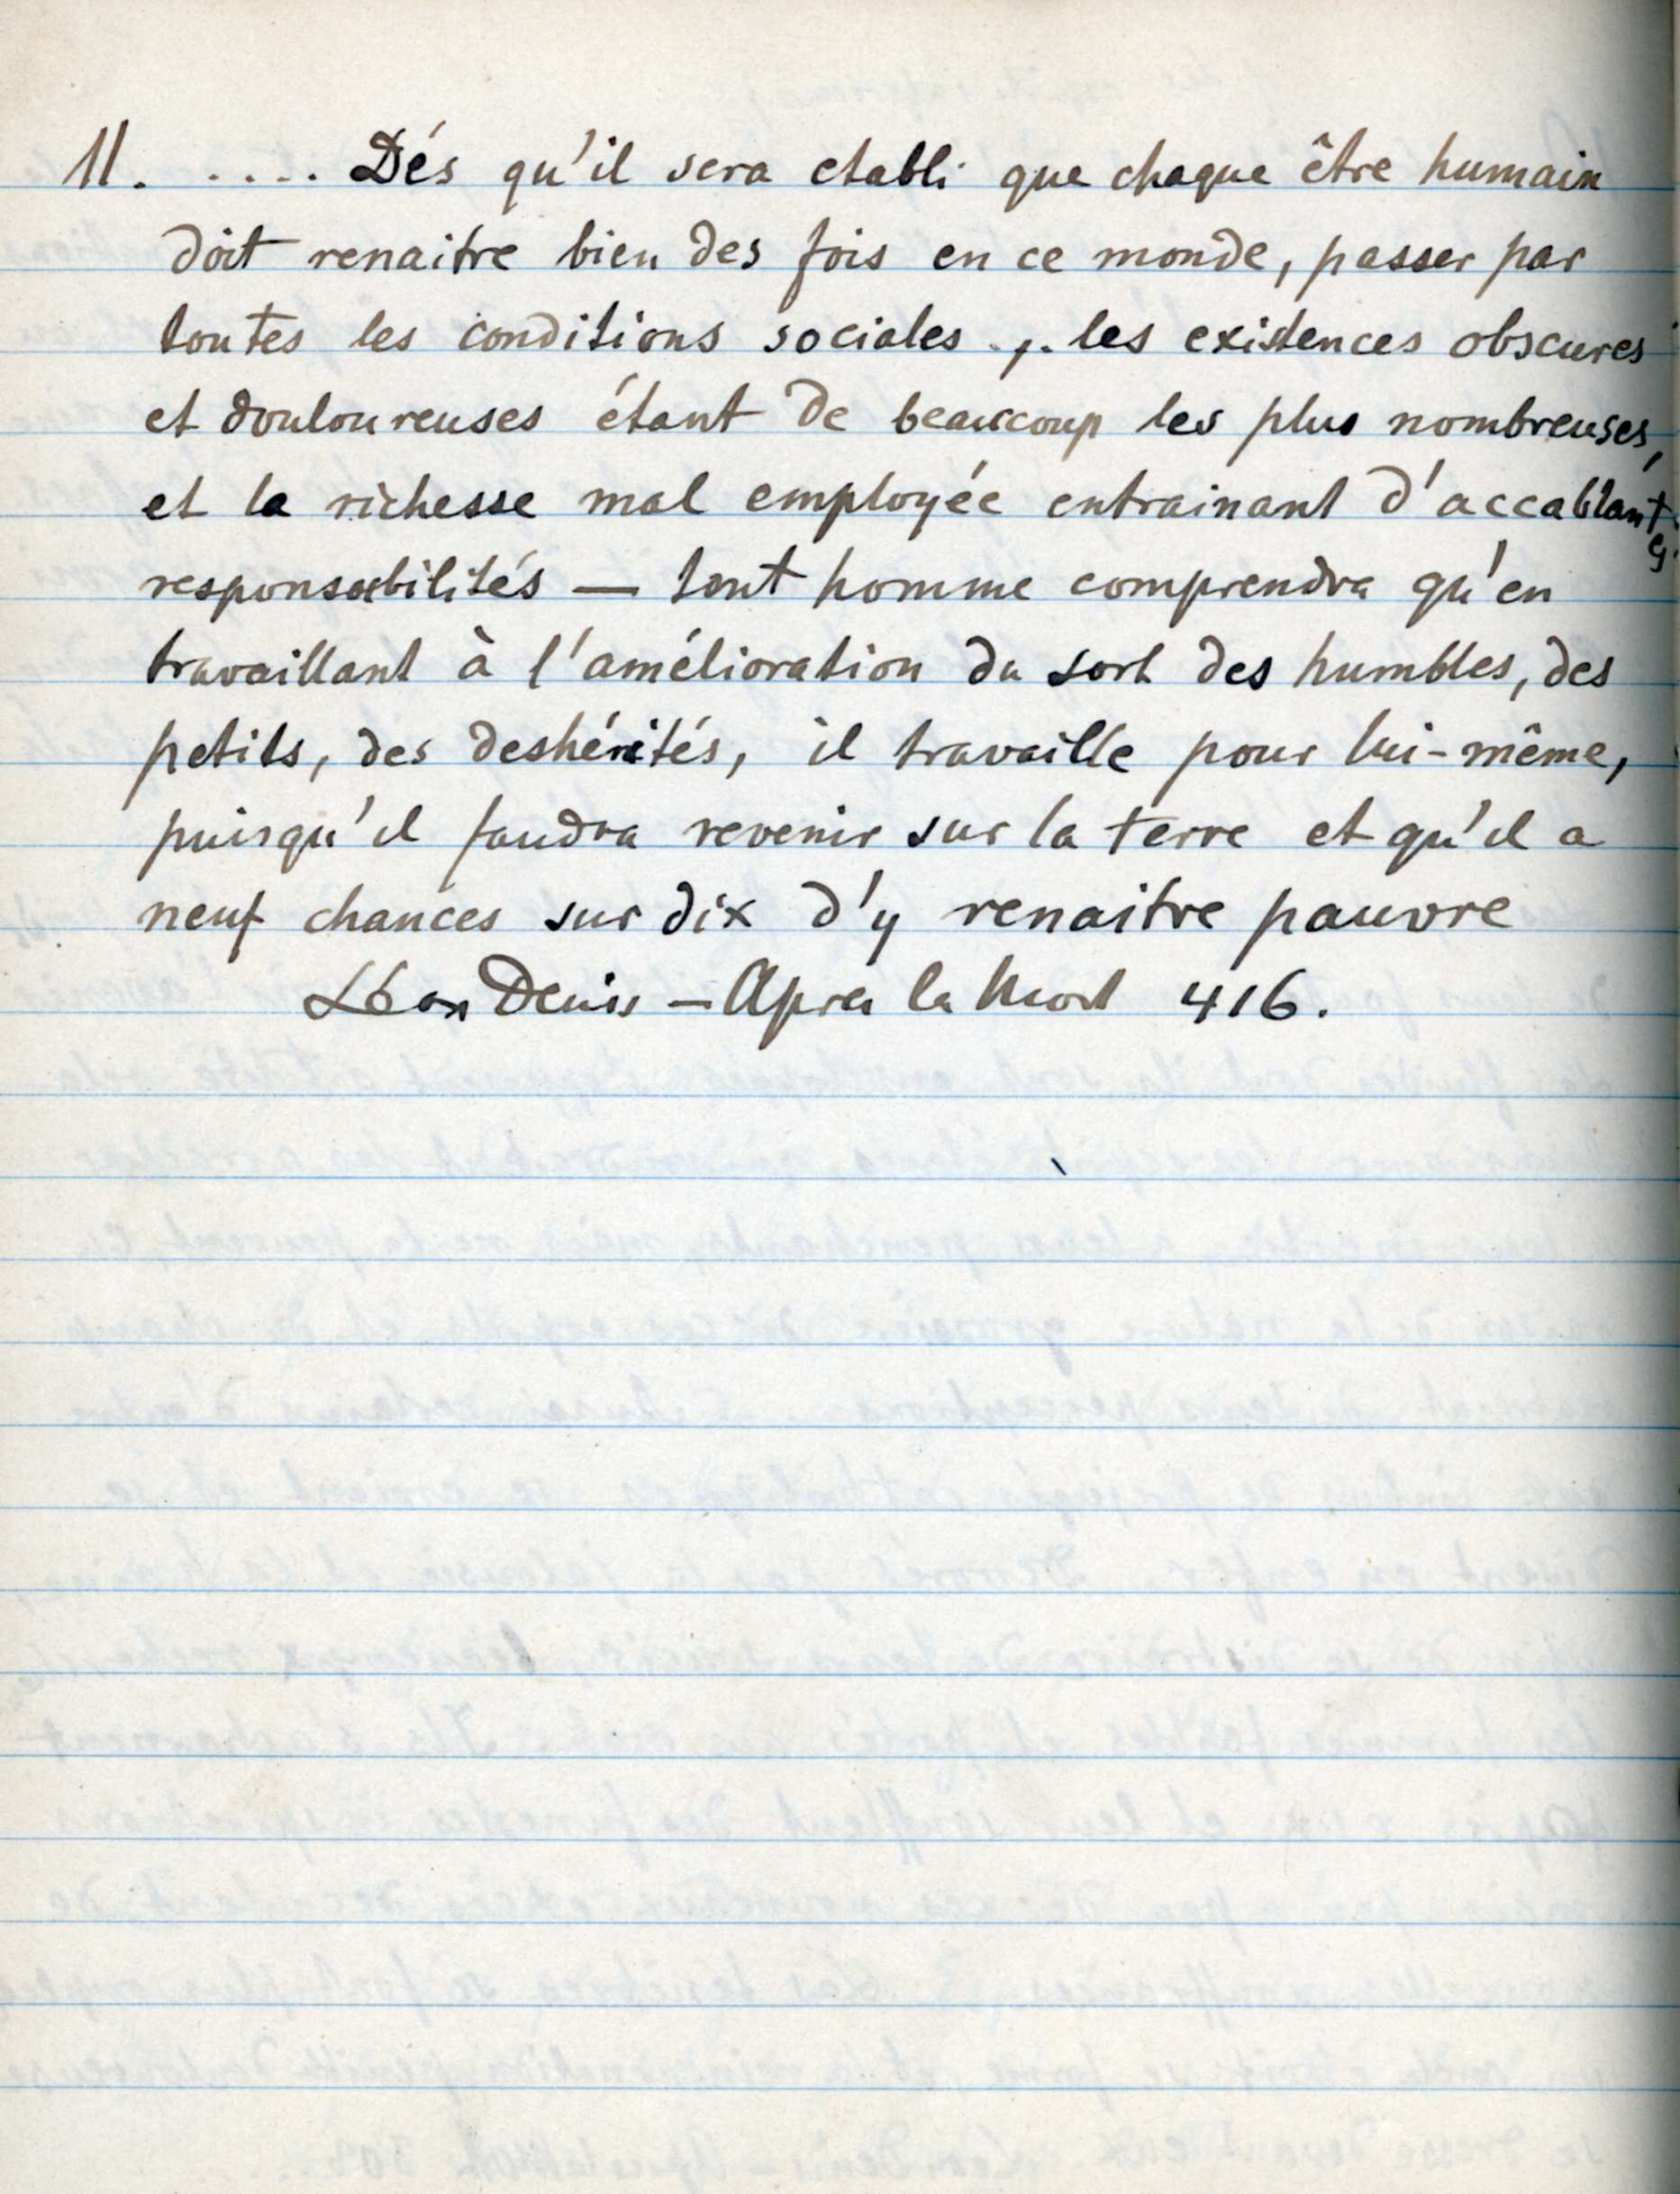 11. ..... Dés qu'il sera etabli que chaque être humain
doit renaitre bien des fois en ce monde, passer par
toutes les conditions sociales .,. les existences obscures
et douloureuses étant de beaucoup les plus nombreuses,
et la richesse mal employée entrainant d'accablantes
responsabilités — tout homme comprendra qu'en
travaillant à l'amélioration du sort des humbles, des
petits, des deshérités, il travaille pour lui-même,
puisqu'il faudra revenir sur la terre et qu'il a
neuf chances sur dix d'y renaitre pauvre
Léon Denis — Apres la Mort 416.